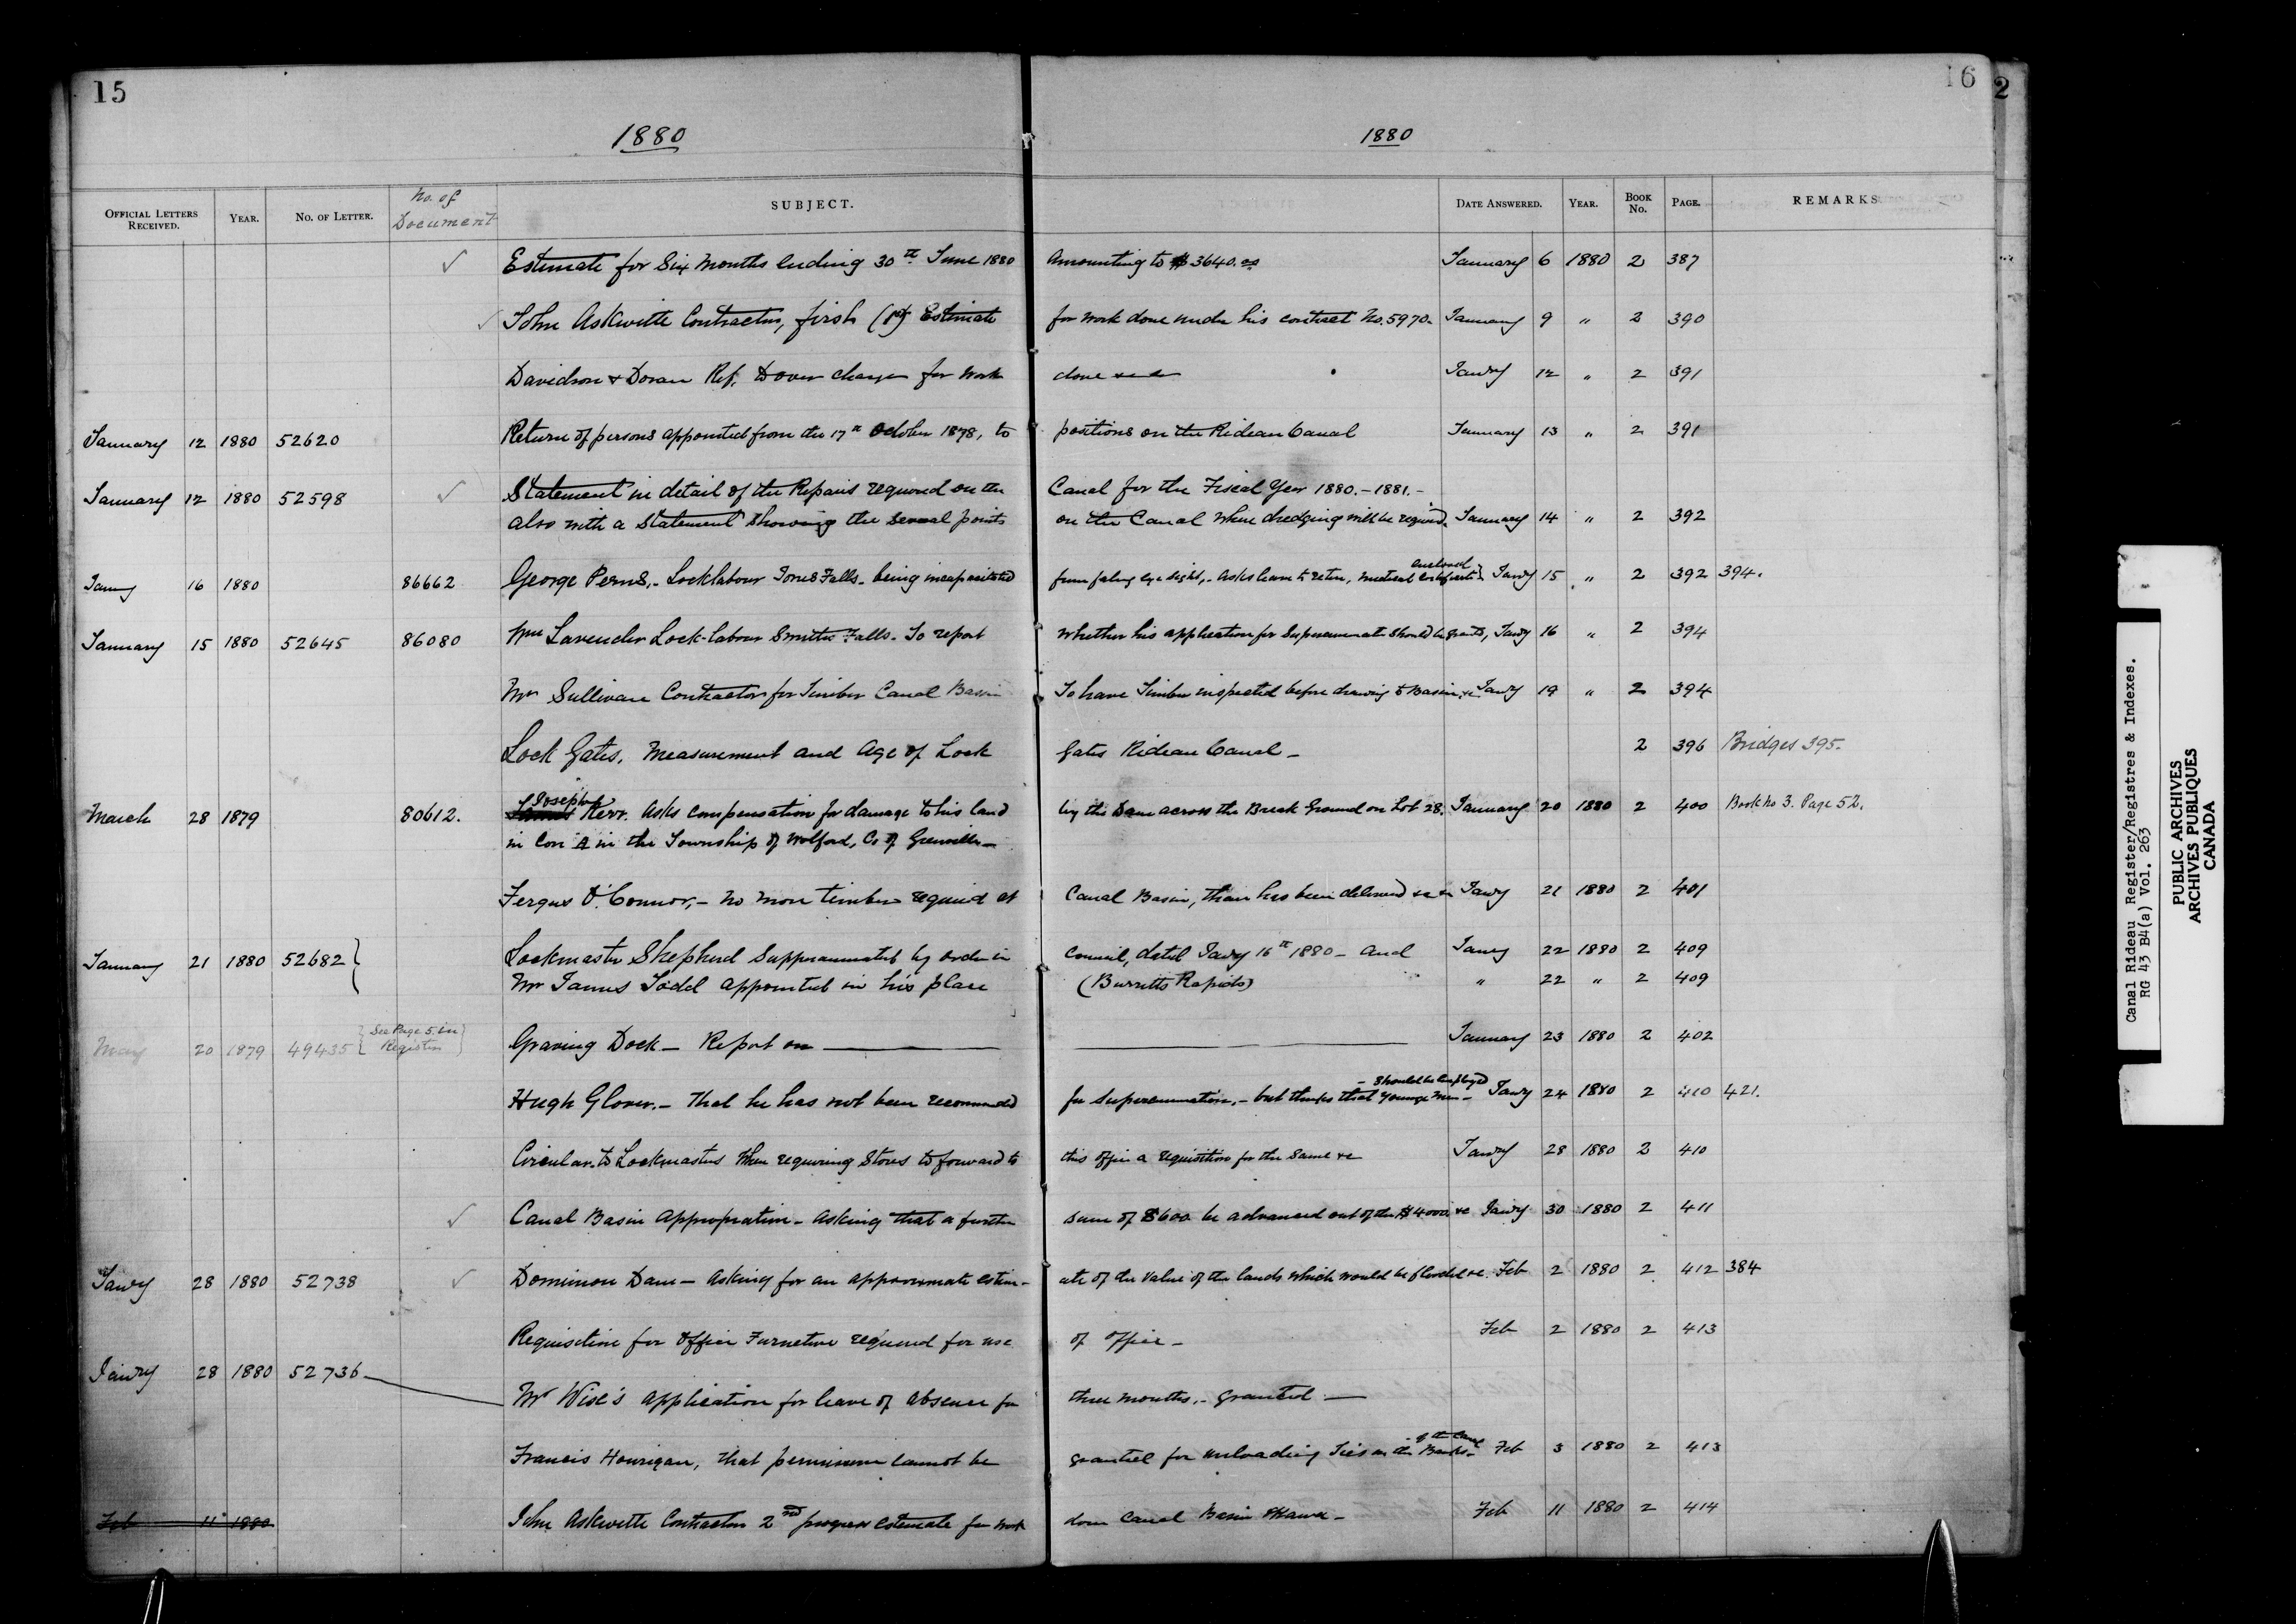 15
16
2
1880
1880
OFFICIAL LETTERS RECEIVED. YEAR. No. OF LETTER. No. of Document SUBJECT. DATE ANSWERED. YEAR. BOOK No. PAGE. REMARKS
✓ Estimate for Six Months ending 30th June 1880 Amounting to $3640.00 January 6 1880 2 387
✓ John Askwith Contractor, first (1st) Estimate for work done under his contract No. 5970. January 9 " 2 390
Davidson & Doran Rep. to over charges for work done &c &c Janry 12 " 2 391
January 12 1880 52620 Return of persons appointed from the 17th October 1878, to positions on the Rideau Canal January 13 " 2 391
January 12 1880 52598 ✓ Statement in detail of the Repairs required on the Canal for the Fiscal Year 1880.-1881.-
also with a Statement showing the several points on the Canal where dredging will be required. January 14 " 2 392
Janry 16 1880 86662 George Perns,- Locklabour Jones Falls- being incapacitated from failing eye sight,- Asks leave to retire, medical certificate enclosed Janry 15 " 2 392 394.
January 15 1880 52645 86080 Wm Lavender Lock-labour Smiths Falls- To report whether his application for Superannuation should be granted, Janry 16 " 2 394
Mr Sullivan Contractor for Timber Canal Basin To have Timber inspected before drawing to Basin &c Janry 19 " 2 394
Lock Gates, Measurement and Age of Lock Gates Rideau Canal - 2 396 Bridges 395.
March 28 1879 80612. James Joseph Kerr. Asks compensation for damage to his land by the Dam across the Break Ground on Lot 28. January 20 1880 2 400 Book No 3. Page 52.
in Con A in the Township of Wolford, Co of Grenville-
Fergus O'Connor,- no more timber required at Canal Basin, than has been delivered &c &c Janry 21 1880 2 401
January 21 1880 52682 } Lockmaster Shepherd Supperannuated by order in Council, dated Janry 16th 1880 - and Janry 22 1880 2 409
Mr James Todd appointed in his place (Burritts Rapids) " 22 " 2 409
May 20 1879 49435 { See Page 5. in Register } Graving Dock - Report on January 23 1880 2 402
Hugh Glover.- That he has not been recommended for Superannuation,- but thinks that younger men - should be employed Janry 24 1880 2 410 421.
Circular. to Lockmasters When requiring Stores to forward to this office a requisition for the same &c Janry 28 1880 2 410
✓ Canal Basin Appropriation - Asking that a further sum of $600 be advanced out of the $4000 &c Janry 30 1880 2 411
Janry 28 1880 52738 ✓ Dominion Dam - Asking for an approximate estim- ate of the value of the lands which would be flooded &c. Feb 2 1880 2 412 384
Requisition for Office Furneture required for use of office - Feb 2 1880 2 413
Janry 28 1880 52736 Mr Wise's application for leave of absence for three months,- granted
Francis Hourigan, that permission cannot be granted for unloading Ties on the Banks of the Canal Feb 3 1880 2 413
Feb 11 1880 John Askwith Contractor 2nd progress estimate for work done Canal Basin Ottawa - Feb 11 1880 2 414
Canal Rideau Register/Registres & Indexes.
RG 43 B4(a) Vol. 263
PUBLIC ARCHIVES
ARCHIVES PUBLIQUES
CANADA